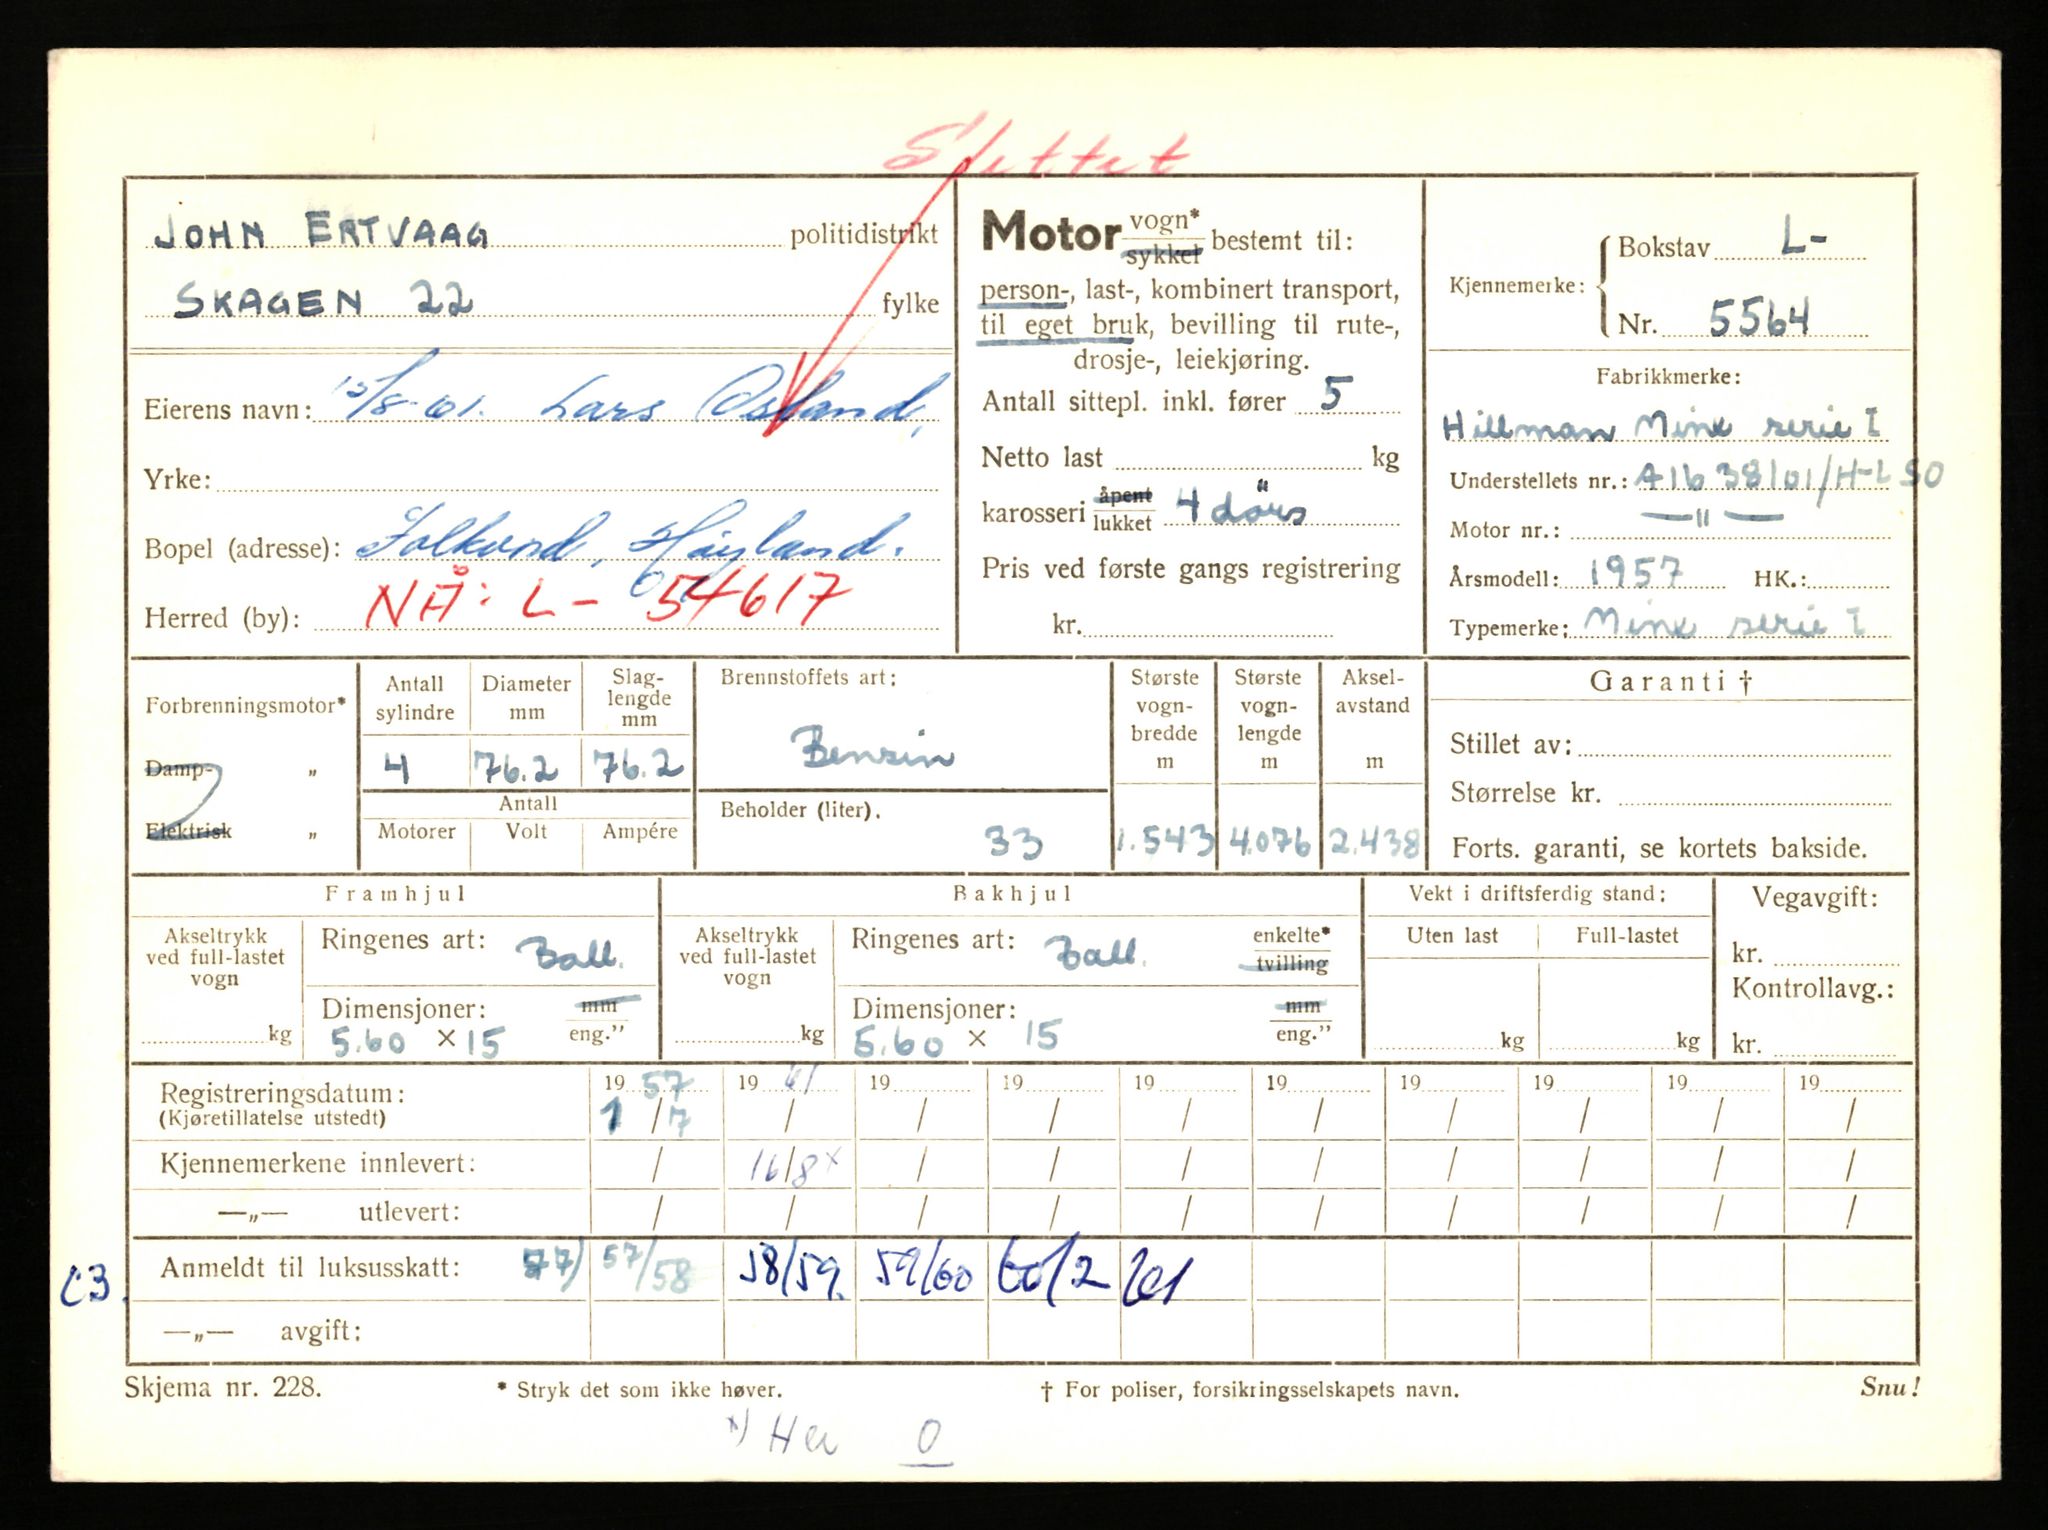 Slettet
JOHN ERTVAAG politidistrikt
SKAGEN 22 fylke
Eierens navn: 15/8-61. Lars Osland,
Yrke:
Bopel (adresse): Folkvord, Høyland.
Herred (by): NÅ: L- 54617
Motor vogn*
sykkel bestemt til:
person-, last-, kombinert transport,
til eget bruk, bevilling til rute-,
drosje-, leiekjøring.
Antall sittepl. inkl. fører 5
Netto last kg
karosseri åpent
lukket 4 dørs
Pris ved første gangs registrering
kr.
Kjennemerke: Bokstav L-
Nr. 5564
Fabrikkmerke:
Hillman Minx serie I
Understellets nr.: A1638101/H-LSO
Motor nr.: —"—
Årsmodell: 1957 HK.:
Typemerke: Minx serie I
Forbrenningsmotor*
Damp- „
Elektrisk „
Antall sylindre
4
Diameter mm
76.2
Slag-
lengde
mm
76.2
Antall
Motorer Volt Ampére
Brennstoffets art:
Bensin
Beholder (liter).
33
Største
vogn-
bredde
m
1.543
Største
vogn-
lengde
m
4.076
Aksel-
avstand
m
2.438
Garanti †
Stillet av:
Størrelse kr.
Forts. garanti, se kortets bakside.
Framhjul
Akseltrykk
ved full-lastet
vogn
kg
Ringenes art: Ball.
Dimensjoner: mm
5.60 × 15 eng.”
Bakhjul
Akseltrykk
ved full-lastet
vogn
kg
Ringenes art: Ball. enkelte*
tvilling
Dimensjoner: mm
5.60 × 15 eng.”
Vekt i driftsferdig stand:
Uten last Full-lastet
kg kg
Vegavgift:
kr.
Kontrollavg.:
kr.
Registreringsdatum: 19 57 19 61 19 19 19 19 19 19 19 19
(Kjøretillatelse utstedt) 1/7 / / / / / / / / /
Kjennemerkene innlevert: / 16/8 x / / / / / / / /
—„— utlevert: / / / / / / / / / /
Anmeldt til luksusskatt: 57/58 58/59. 59/60 60/2 61
—„— avgift:
Skjema nr. 228. * Stryk det som ikke høver. † For poliser, forsikringsselskapets navn. Snu!
x) Her 0